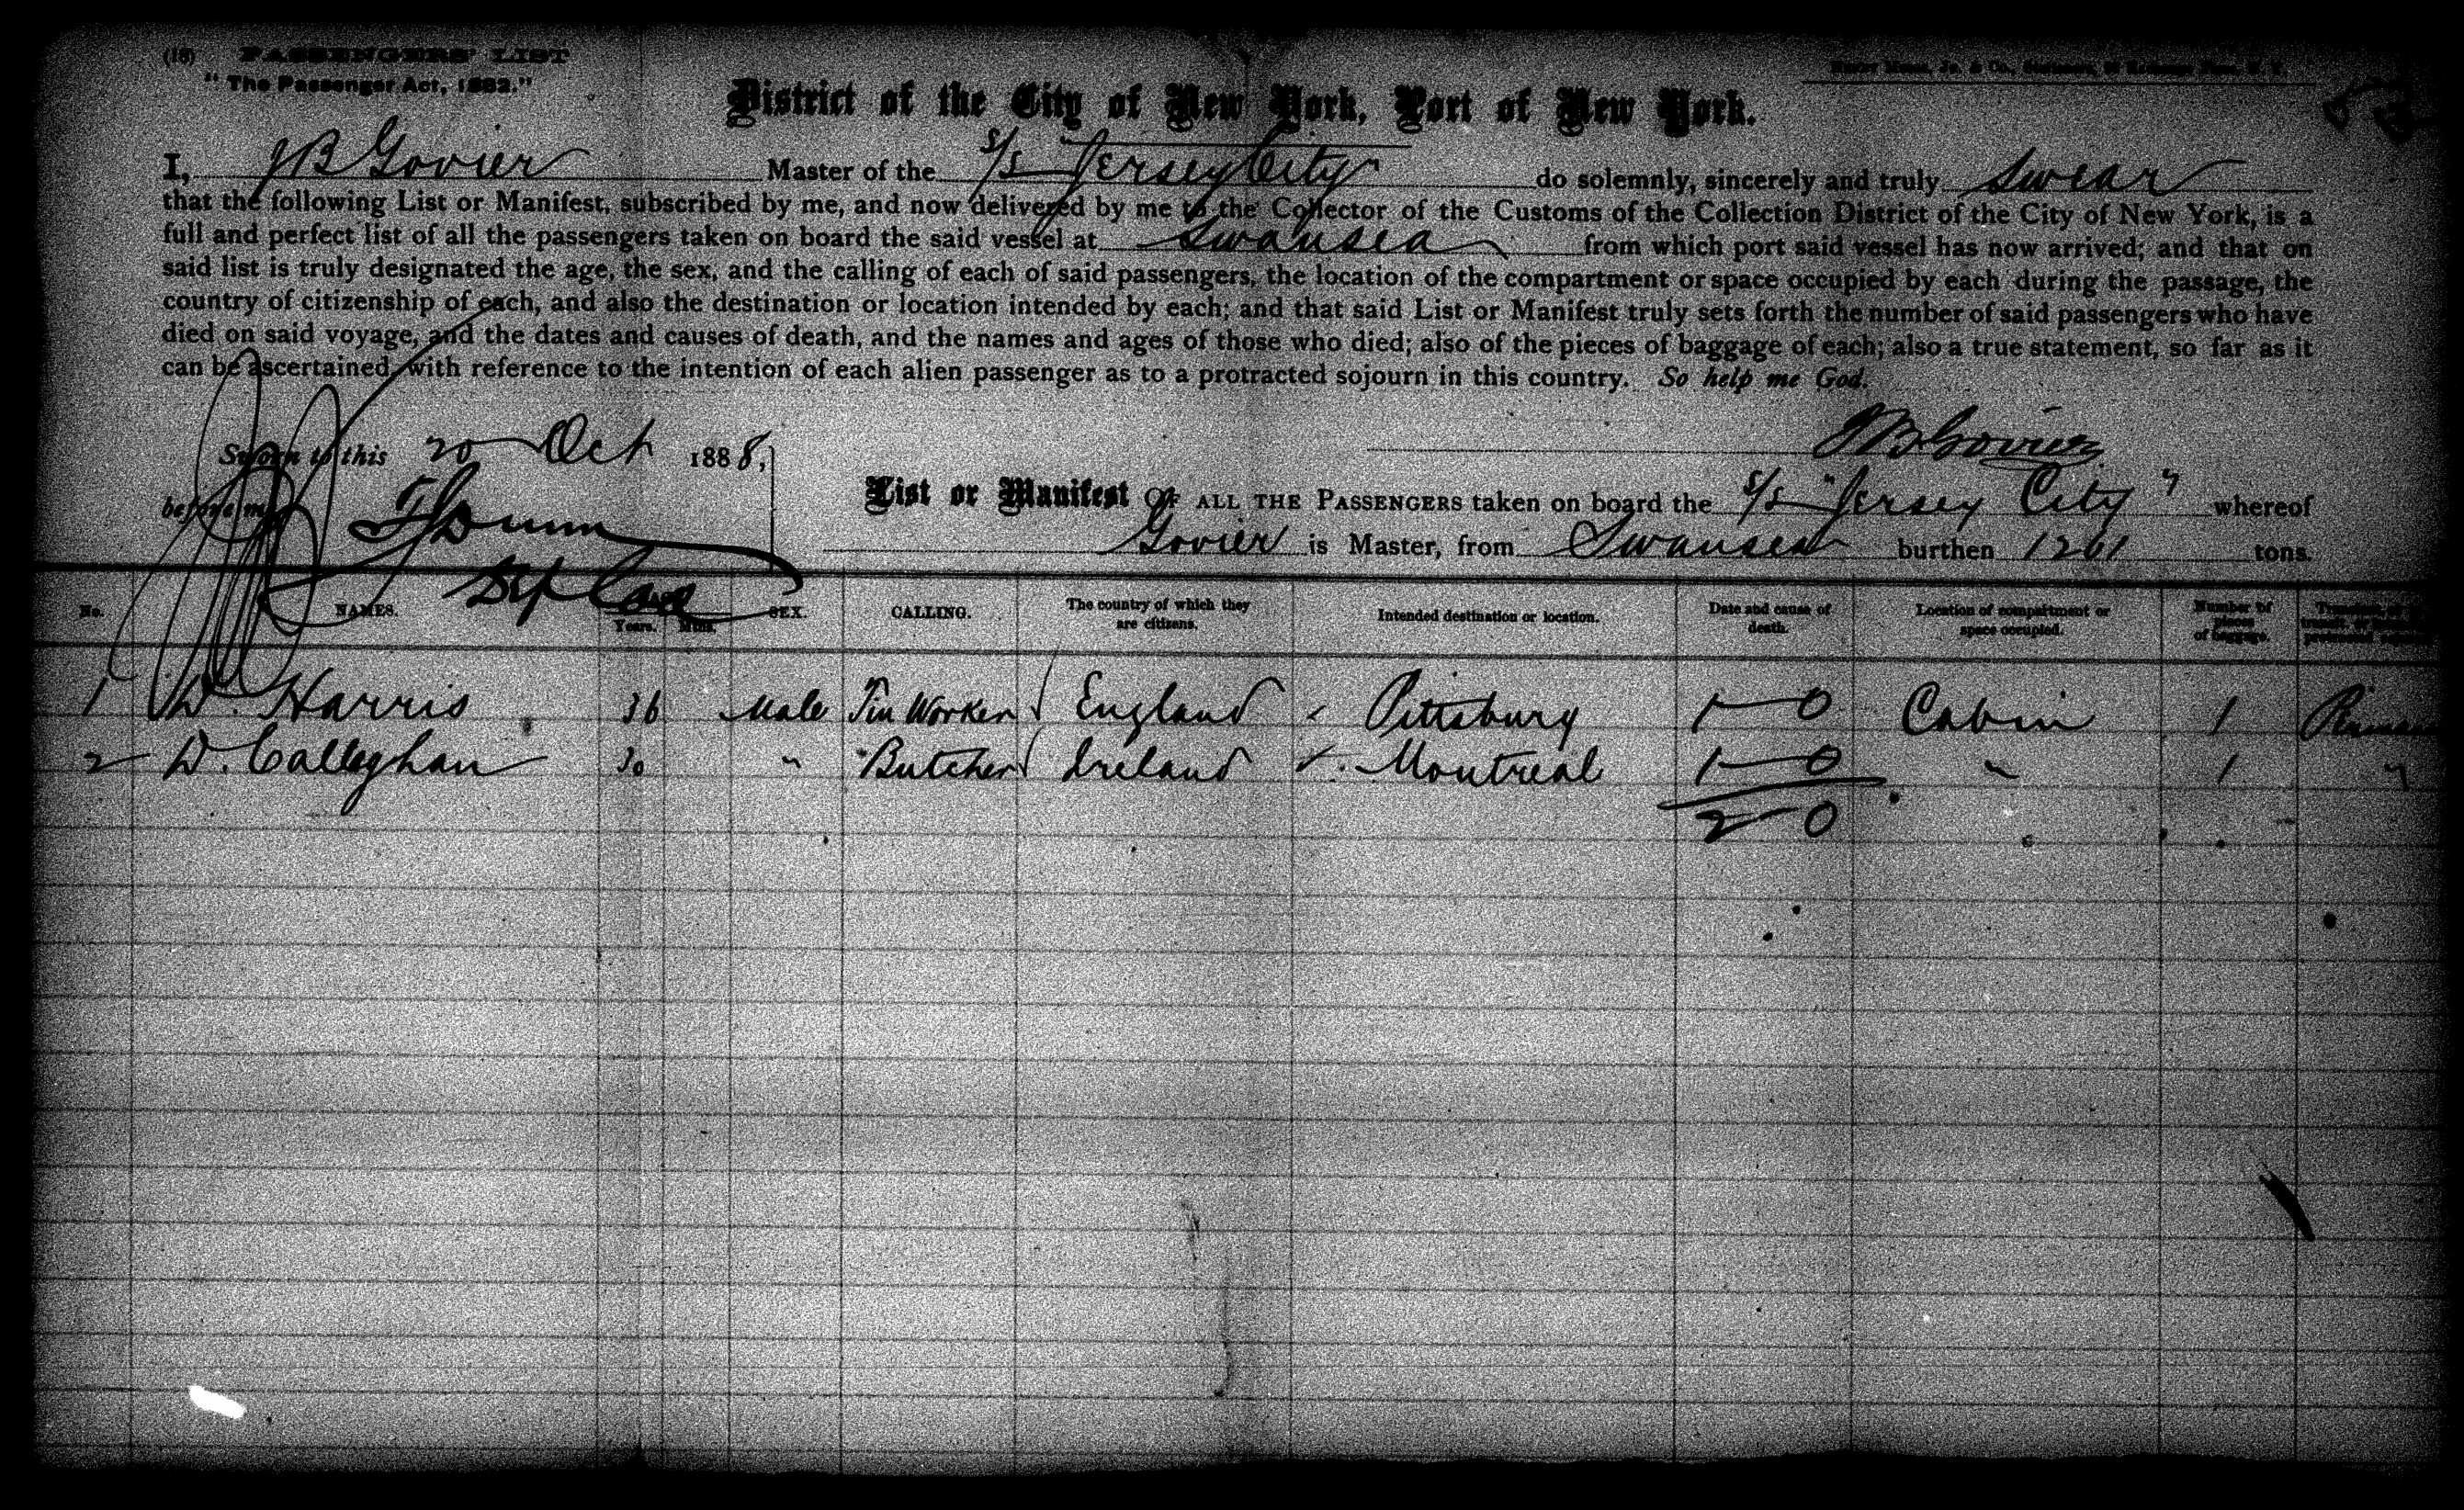 (18) PASSENGERS' LIST
"The Passenger Act, 1882."
District of the City of New York, Port of New York.
I, JB Govier Master of the S/S Jersey City do solemnly, sincerely and truly swear
that the following List or Manifest, subscribed by me, and now delivered by me to the Collector of the Customs of the Collection District of the City of New York, is a
full and perfect list of all the passengers taken on board the said vessel at Swansea from which port said vessel has now arrived; and that on
said list is truly designated the age, the sex, and the calling of each of said passengers, the location of the compartment or space occupied by each during the passage, the
country of citizenship of each, and also the destination or location intended by each; and that said List or Manifest truly sets forth the number of said passengers who have
died on said voyage, and the dates and causes of death, and the names and ages of those who died; also of the pieces of baggage of each; also a true statement, so far as it
can be ascertained, with reference to the intention of each alien passenger as to a protracted sojourn in this country. So help me God.
JB Govier
Sworn to this 20 Oct 1888,
before me
Dep Coll
List or Manifest OF ALL THE PASSENGERS taken on board the S/S "Jersey City" whereof
Govier is Master, from Swansea burthen 1201 tons.
No. NAMES. Years. Mths. SEX. CALLING. The country of which they are citizens. Intended destination or location. Date and cause of death. Location of compartment or space occupied. Number of pieces of baggage.
1 W. Harris 36 Male Tin Worker England Pittsburg 1-0 Cabin 1
2 D. Callaghan 30 " Butcher Ireland Montreal 1-0 " 1 "
2-0